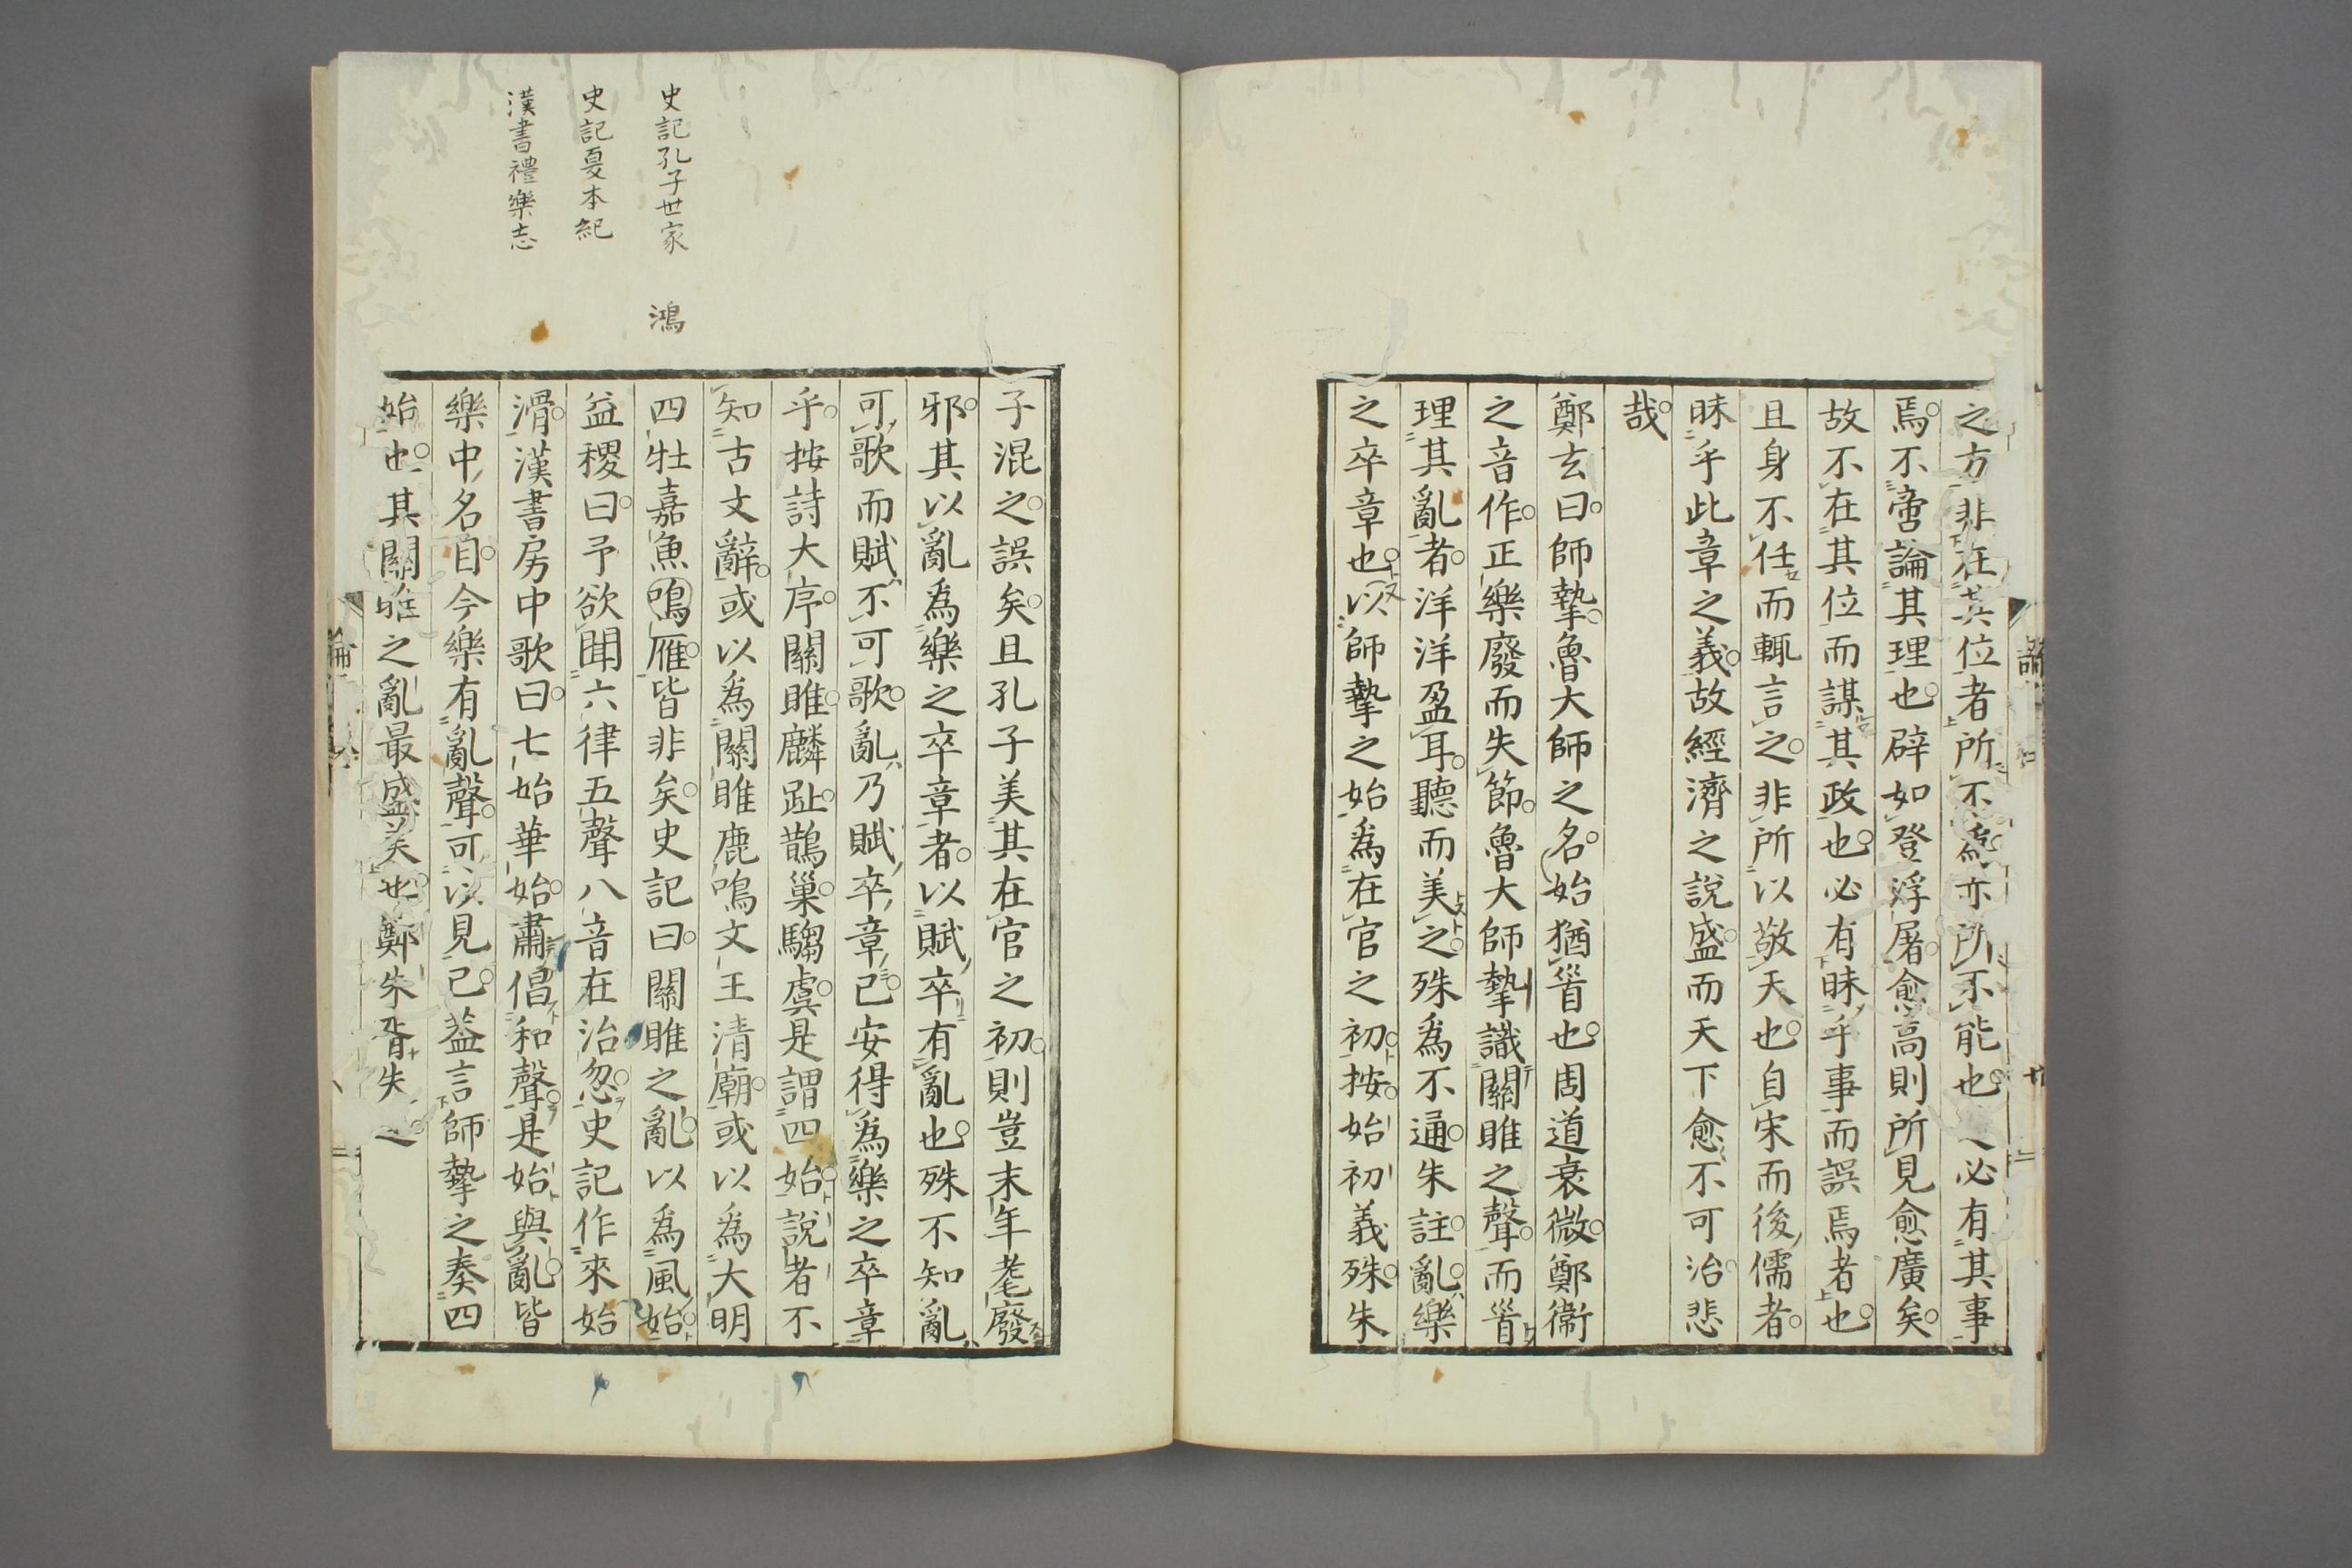 之方非在其位者所不爲亦所不能也必有其事
焉不啻論其理也辟如登浮屠愈高則所見愈廣矣
故不在其位而謀其政也必有昧乎事而誤焉者也
且身不任而輒言之非所以敬天也自宋而後儒者
昧乎此章之義故經濟之說盛而天下愈不可治悲
哉
鄭玄曰師摯魯大師之名始猶首也周道衰微鄭衞
之音作正樂廢而失節魯大師摯識關雎之聲而首
理其亂者洋洋盈耳聽而美之殊爲不通朱註亂樂
之卒章也以師摯之始爲在官之初按始初義殊朱
子混之誤矣且孔子美其在官之初則豈末年耄廢
邪其以亂爲樂之卒章者以賦卒有亂也殊不知亂
可歌而賦不可歌亂乃賦卒章已安得爲樂之卒章
乎按詩大序關雎麟趾鵲巢騶虞是謂四始說者不
知古文辭或以爲關雎鹿鳴文王清廟或以爲大明
四牡嘉魚鳴雁皆非矣史記曰關雎之亂以爲風始
益稷曰予欲聞六律五聲八音在治忽史記作來始
滑漢書房中歌曰七始華始肅倡和聲是始與亂皆
樂中名目今樂有亂聲可以見已蓋言師摯之奏四
始也其關雎之亂最盛美也鄭朱胥失之
史記孔子世家
鴻
史記夏本紀
漢書禮樂志